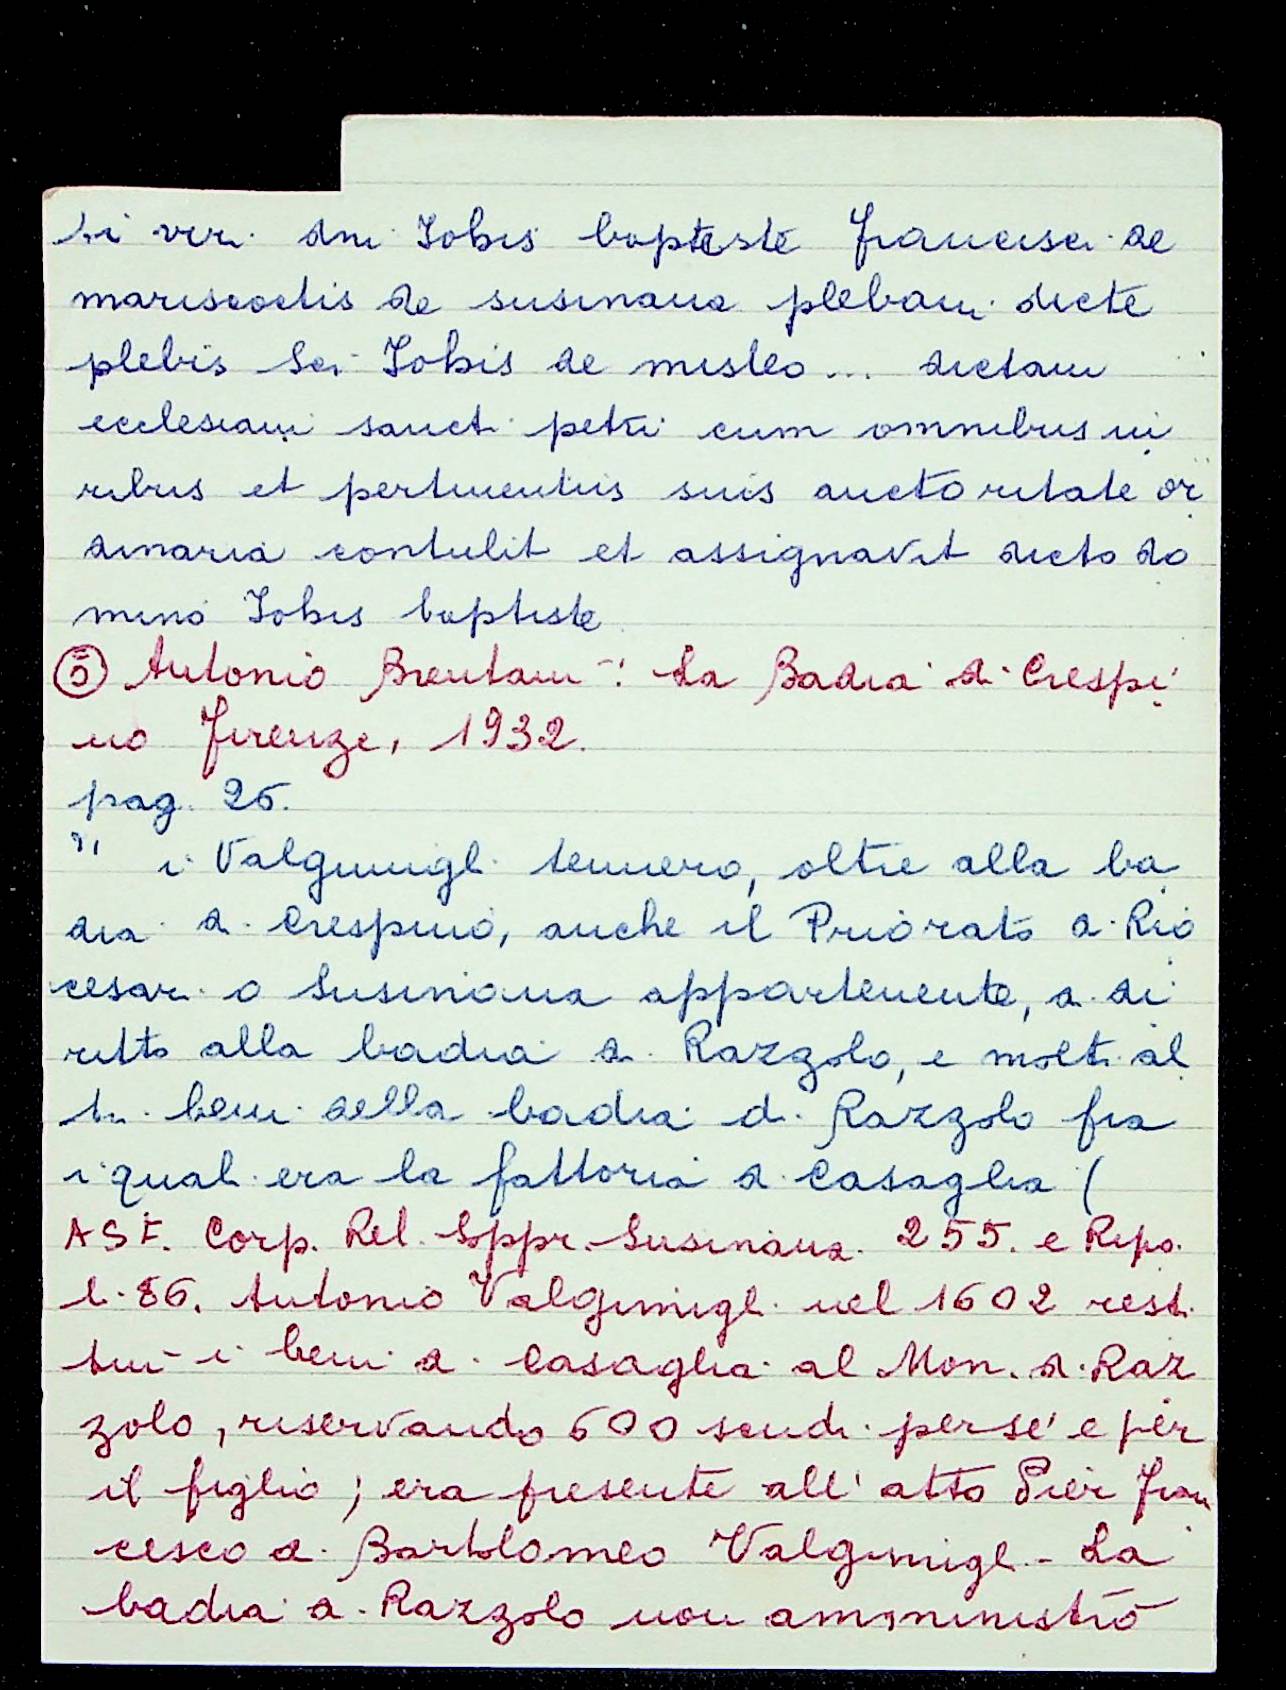 ti viri dni Johis baptiste francisci de
mariscoctis de susinana plebani dicte
plebis Sci Johis de misleo... dictam
ecclesiam sancti petri cum omnibus iu
ribus et pertinentiis suis auctoritate or
dinaria contulit et assignavit dicto do
mino Johis baptiste
⑤ Antonio Brentani: La Badia di Crespi
no Firenze, 1932.
pag. 26.
" i Valgimigli tennero, oltre alla ba
dia di Crespino, anche il Priorato di Rio
cesari o Susinana appartenente, di di
ritto alla badia di Razzolo, e molti al
tri beni della badia di Razzolo fra
i quali era la fattoria di Casaglia (
ASF. Corp. Rel. Soppr. Susinana. 255. e Ripo
li. 86. Antonio Valgimigli nel 1602 resti
tuì i beni di Casaglia al Mon. di Raz
zolo, riservando 600 scudi per sé e per
il figlio; era presente all' atto Pier Fran
cesco di Bartolomeo Valgimigli - La
badia di Razzolo non amministrò